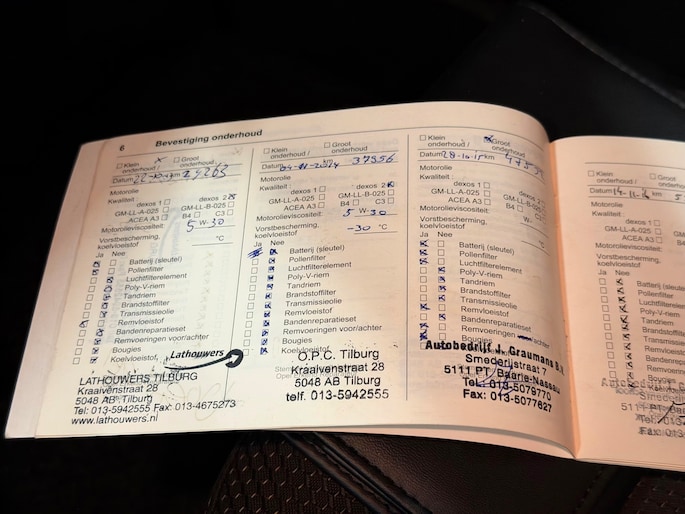 6 Bevestiging onderhoud
Klein onderhoud / Groot onderhoud
Datum km 24263
Motorolie
Kwaliteit:
dexos 1 dexos 2
GM-LL-A-025 GM-LL-B-025
ACEA A3 B4 C3
Motorolieviscositeit:
5 W-30
Vorstbescherming, koelvloeistof °C
Ja Nee
Batterij (sleutel)
Pollenfilter
Luchtfilterelement
Poly-V-riem
Tandriem
Brandstoffilter
Transmissieolie
Remvloeistof
Bandenreparatieset
Remvoeringen voor/achter
Bougies
Koelvloeistof
Lathouwers
LATHOUWERS TILBURG
Kraaivenstraat 28
5048 AB Tilburg
Tel: 013-5942555 Fax: 013-4675273
www.lathouwers.nl
Klein onderhoud / Groot onderhoud
Datum 04-11-2014 km 37956
Motorolie
Kwaliteit:
dexos 1 dexos 2
GM-LL-A-025 GM-LL-B-025
ACEA A3 B4 C3
Motorolieviscositeit:
5 W-30
Vorstbescherming, koelvloeistof -30 °C
Ja Nee
Batterij (sleutel)
Pollenfilter
Luchtfilterelement
Poly-V-riem
Tandriem
Brandstoffilter
Transmissieolie
Remvloeistof
Bandenreparatieset
Remvoeringen voor/achter
Bougies
Koelvloeistof
O.P.C. Tilburg
Kraaivenstraat 28
5048 AB Tilburg
telf. 013-5942555
Klein onderhoud / Groot onderhoud
Datum 28-10-15 km
Motorolie
Kwaliteit:
dexos 1 dexos 2
GM-LL-A-025 GM-LL-B-025
ACEA A3 B4 C3
Motorolieviscositeit:
W-
Vorstbescherming, koelvloeistof °C
Ja Nee
Batterij (sleutel)
Pollenfilter
Luchtfilterelement
Poly-V-riem
Tandriem
Brandstoffilter
Transmissieolie
Remvloeistof
Bandenreparatieset
Remvoeringen voor/achter
Bougies
Autobedrijf J. Graumans B.V.
Smederijstraat 7
5111 PT Baarle-Nassau
Tel: 013-5079770
Fax: 013-5077627
Klein onderhoud / Groot onderhoud
Datum km
Motorolie
Kwaliteit:
dexos 1
GM-LL-A-025
ACEA A3
Motorolieviscositeit:
Vorstbescherming, koelvloeistof
Ja Nee
Batterij (sleutel)
Pollenfilter
Luchtfilterelement
Poly-V-riem
Tandriem
Brandstoffilter
Transmissieolie
Remvloeistof
Bandenreparatieset
Remvoeringen
Bougies